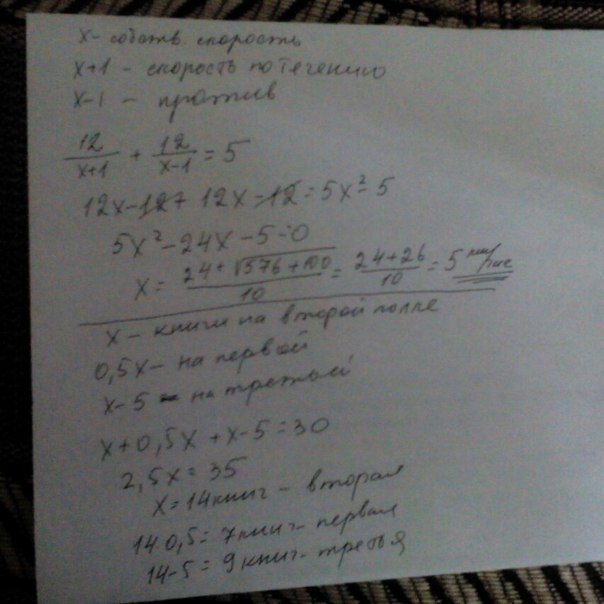 x - собств. скорость
x+1 - скорость по течению
x-1 - против
12/(x+1) + 12/(x-1) = 5
12x-12+12x-12=5x²-5
5x²-24x-5=0
x = (24+√(576+100))/10 = (24+26)/10 = 5 км/час
x - книги на второй полке
0,5x - на первой
x-5 - на третьей
x+0,5x+x-5=30
2,5x=35
x=14книг - вторая
14 0,5=7книг-первая
14-5=9книг-третья